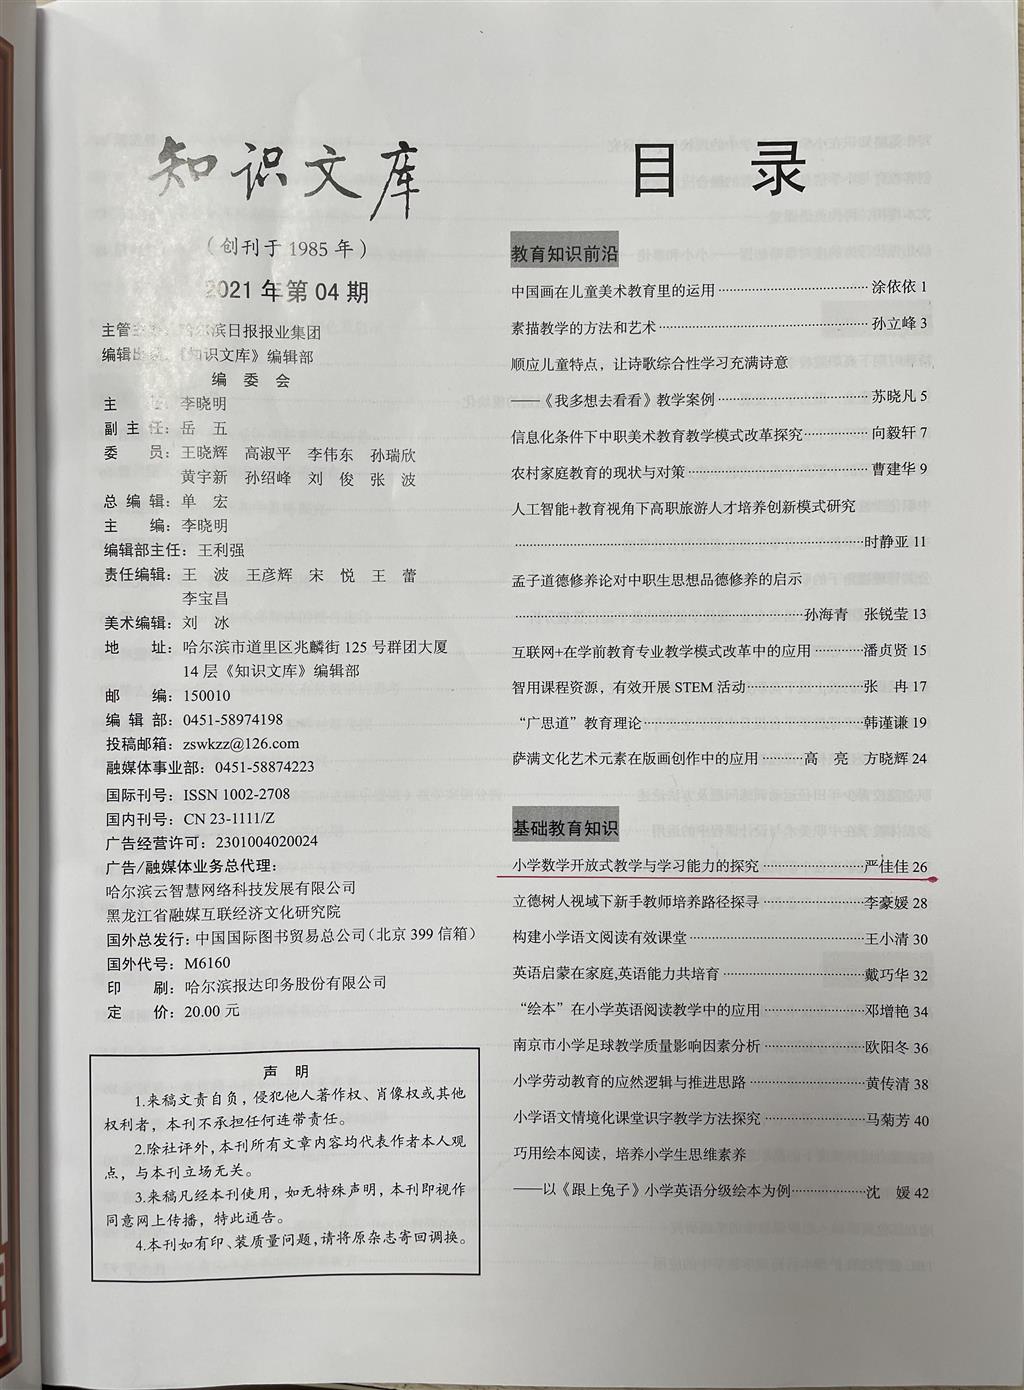 知识文库
（创刊于1985年）
2021年第04期
主管主办：哈尔滨日报报业集团
编辑出版：《知识文库》编辑部
编 委 会
主 任：李晓明
副 主 任：岳 五
委 员：王晓辉 高淑平 李伟东 孙瑞欣
黄宇新 孙绍峰 刘 俊 张 波
总 编 辑：单 宏
主 编：李晓明
编辑部主任：王利强
责任编辑：王 波 王彦辉 宋 悦 王 蕾
李宝昌
美术编辑：刘 冰
地 址：哈尔滨市道里区兆麟街125号群团大厦
14层《知识文库》编辑部
邮 编：150010
编 辑 部：0451-58974198
投稿邮箱：zswkzz@126.com
融媒体事业部：0451-58874223
国际刊号：ISSN 1002-2708
国内刊号：CN 23-1111/Z
广告经营许可：2301004020024
广告/融媒体业务总代理：
哈尔滨云智慧网络科技发展有限公司
黑龙江省融媒互联经济文化研究院
国外总发行：中国国际图书贸易总公司（北京399信箱）
国外代号：M6160
印 刷：哈尔滨报达印务股份有限公司
定 价：20.00元
声 明
1.来稿文责自负，侵犯他人著作权、肖像权或其他
权利者，本刊不承担任何连带责任。
2.除社评外，本刊所有文章内容均代表作者本人观
点，与本刊立场无关。
3.来稿凡经本刊使用，如无特殊声明，本刊即视作
同意网上传播，特此通告。
4.本刊如有印、装质量问题，请将原杂志寄回调换。
目 录
教育知识前沿
中国画在儿童美术教育里的运用……………………涂依依 1
素描教学的方法和艺术……………………孙立峰 3
顺应儿童特点，让诗歌综合性学习充满诗意
——《我多想去看看》教学案例……………………苏晓凡 5
信息化条件下中职美术教育教学模式改革探究…………向毅轩 7
农村家庭教育的现状与对策……………………曹建华 9
人工智能+教育视角下高职旅游人才培养创新模式研究
……………………时静亚 11
孟子道德修养论对中职生思想品德修养的启示
……………………孙海青 张锐莹 13
互联网+在学前教育专业教学模式改革中的应用…………潘贞贤 15
智用课程资源，有效开展STEM活动……………………张 冉 17
“广思道”教育理论……………………韩谨谦 19
萨满文化艺术元素在版画创作中的应用…………高 亮 方晓辉 24
基础教育知识
小学数学开放式教学与学习能力的探究……………………严佳佳 26
立德树人视域下新手教师培养路径探寻……………………李豪媛 28
构建小学语文阅读有效课堂……………………王小清 30
英语启蒙在家庭,英语能力共培育……………………戴巧华 32
“绘本”在小学英语阅读教学中的应用……………………邓增艳 34
南京市小学足球教学质量影响因素分析……………………欧阳冬 36
小学劳动教育的应然逻辑与推进思路……………………黄传清 38
小学语文情境化课堂识字教学方法探究……………………马菊芳 40
巧用绘本阅读，培养小学生思维素养
——以《跟上兔子》小学英语分级绘本为例…………沈 媛 42